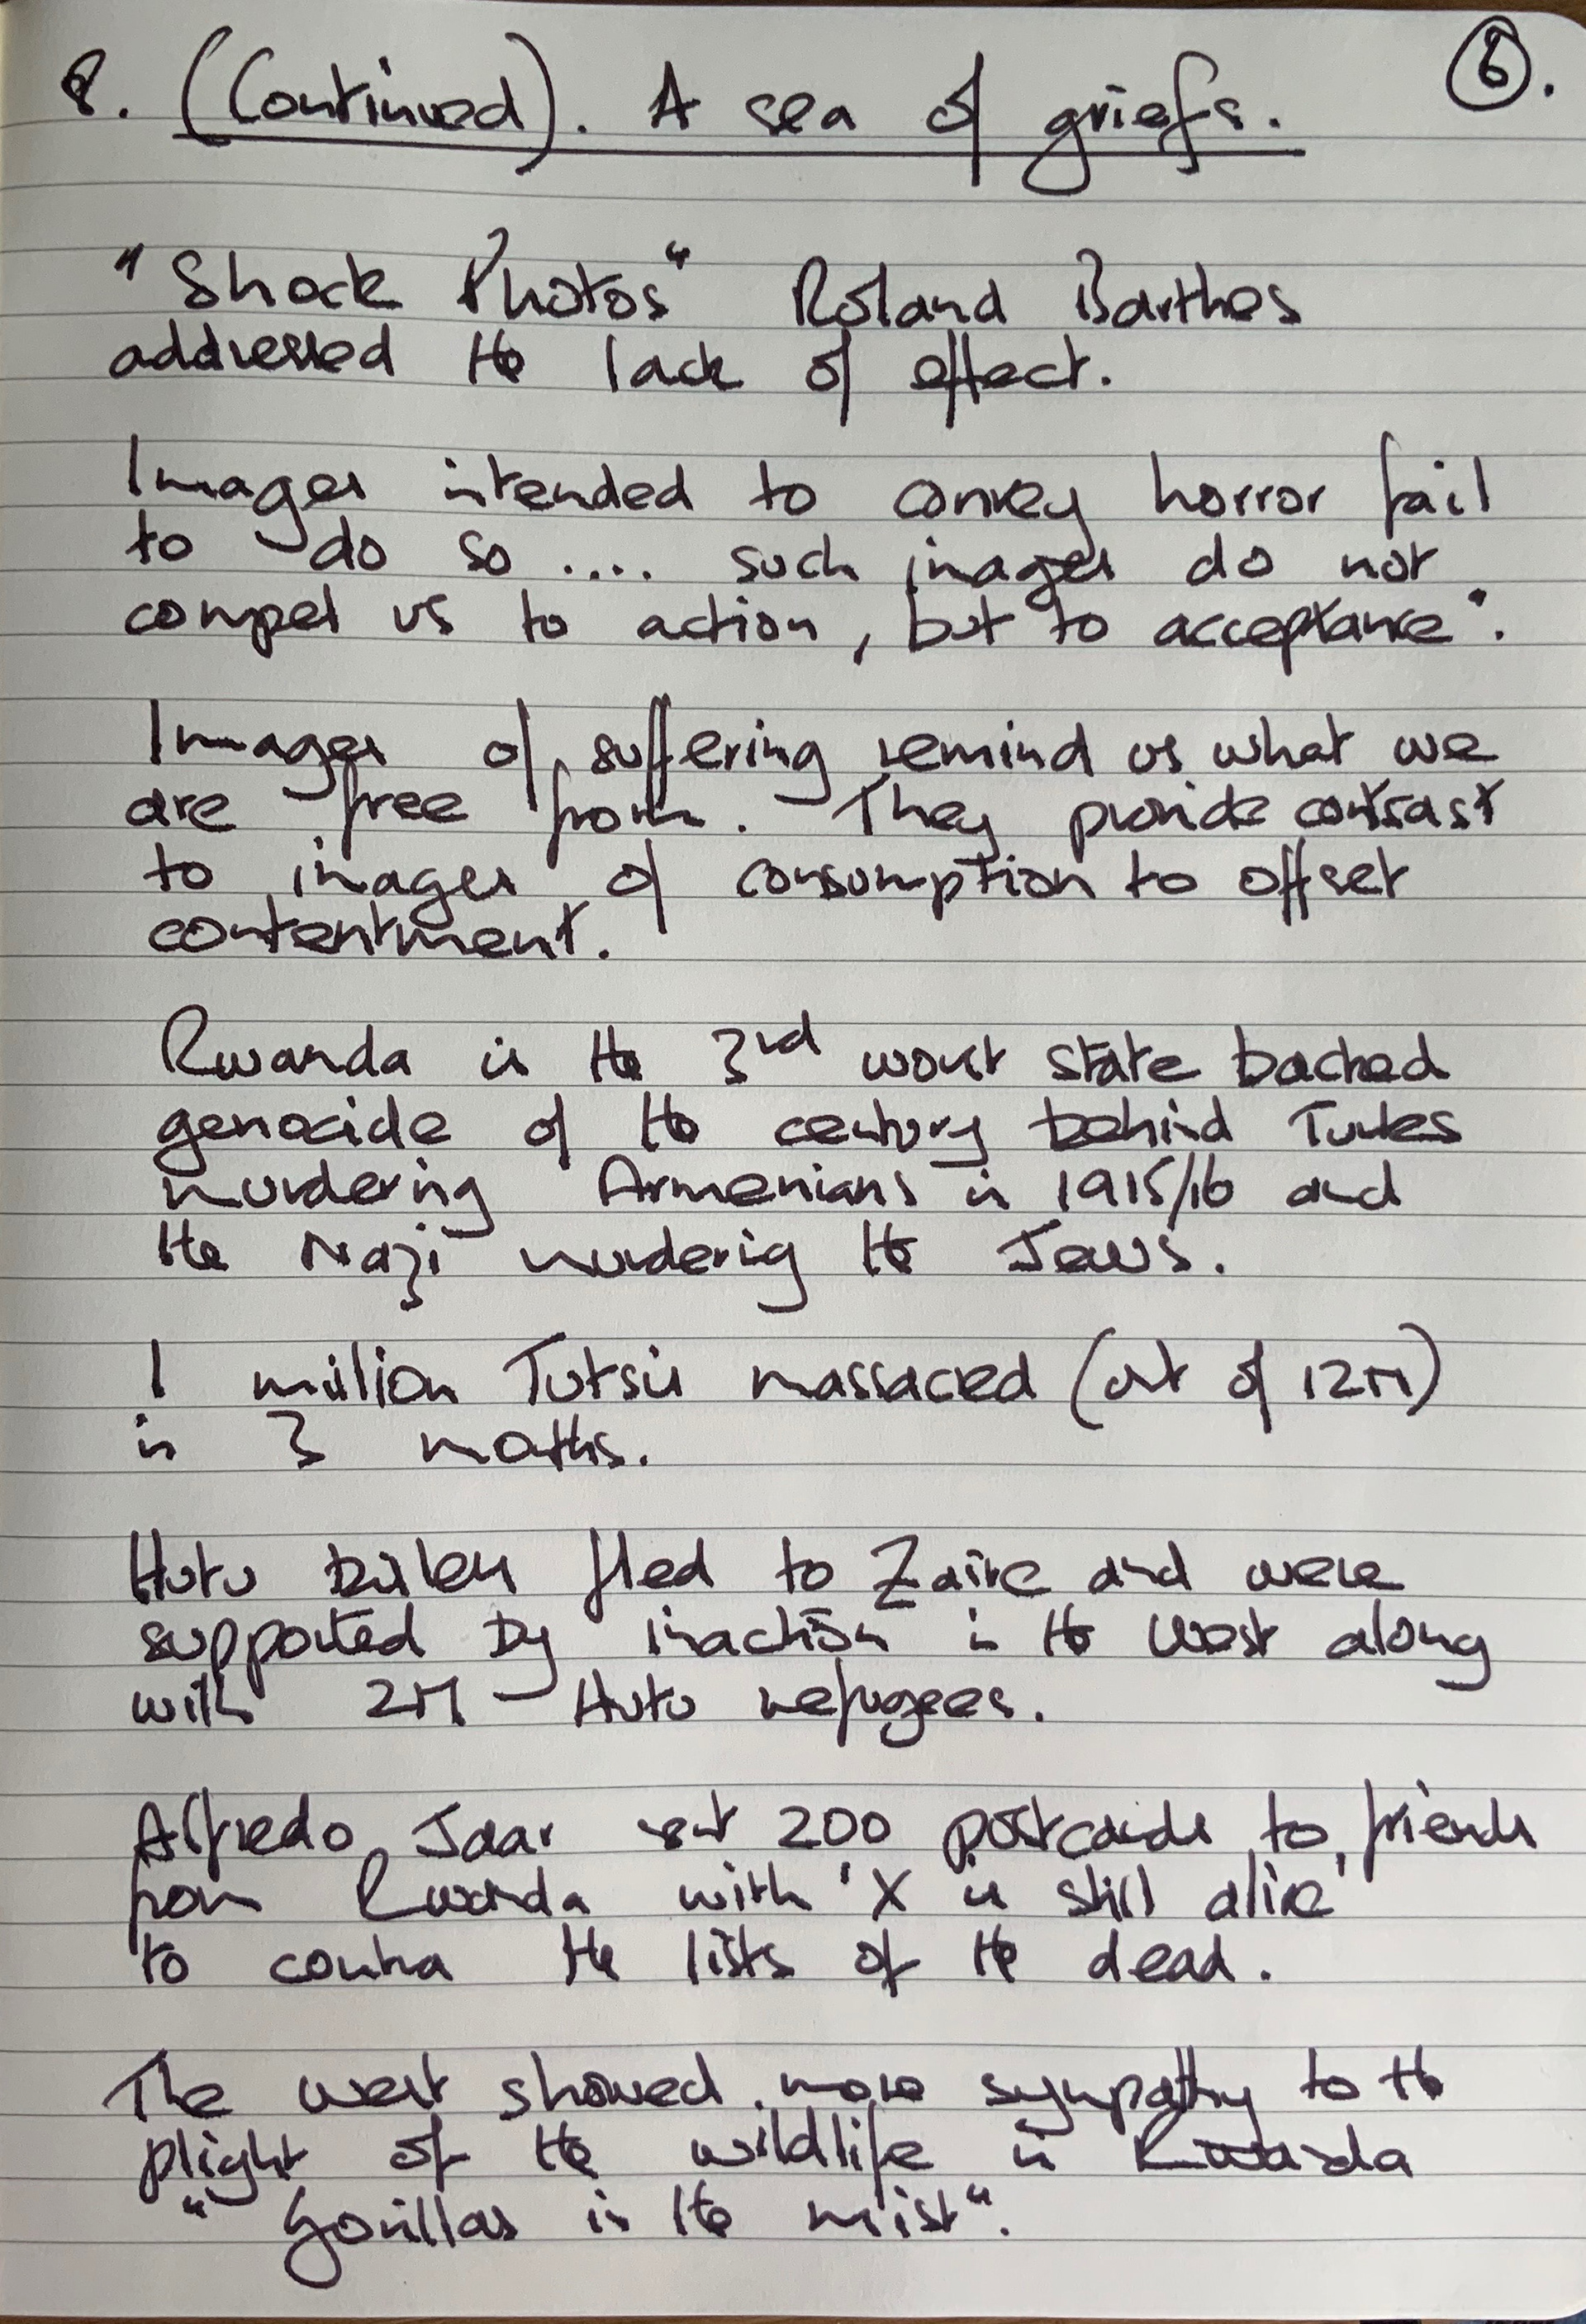 8. (Continued). A sea of griefs. 6.
"Shock Photos" Roland Barthes
addressed the lack of effect.
Images intended to convey horror fail
to do so .... such images do not
compel us to action, but to acceptance".
Images of suffering remind us what we
are free from. They provide contrast
to images of consumption to offset
contentment.
Rwanda is the 3rd worst state backed
genocide of the century behind Turkes
murdering Armenians in 1915/16 and
the Nazi murdering the Jews.
1 million Tutsis massacred (out of 12M)
in 3 months.
Hutu killers fled to Zaire and were
supported by inaction in the West along
with 2M Hutu refugees.
Alfredo Jaar sent 200 postcards to friends
from Rwanda with 'X is still alive'
to contra the lists of the dead.
The west showed more sympathy to the
plight of the wildlife in Rwanda
"Gorillas in the mist".